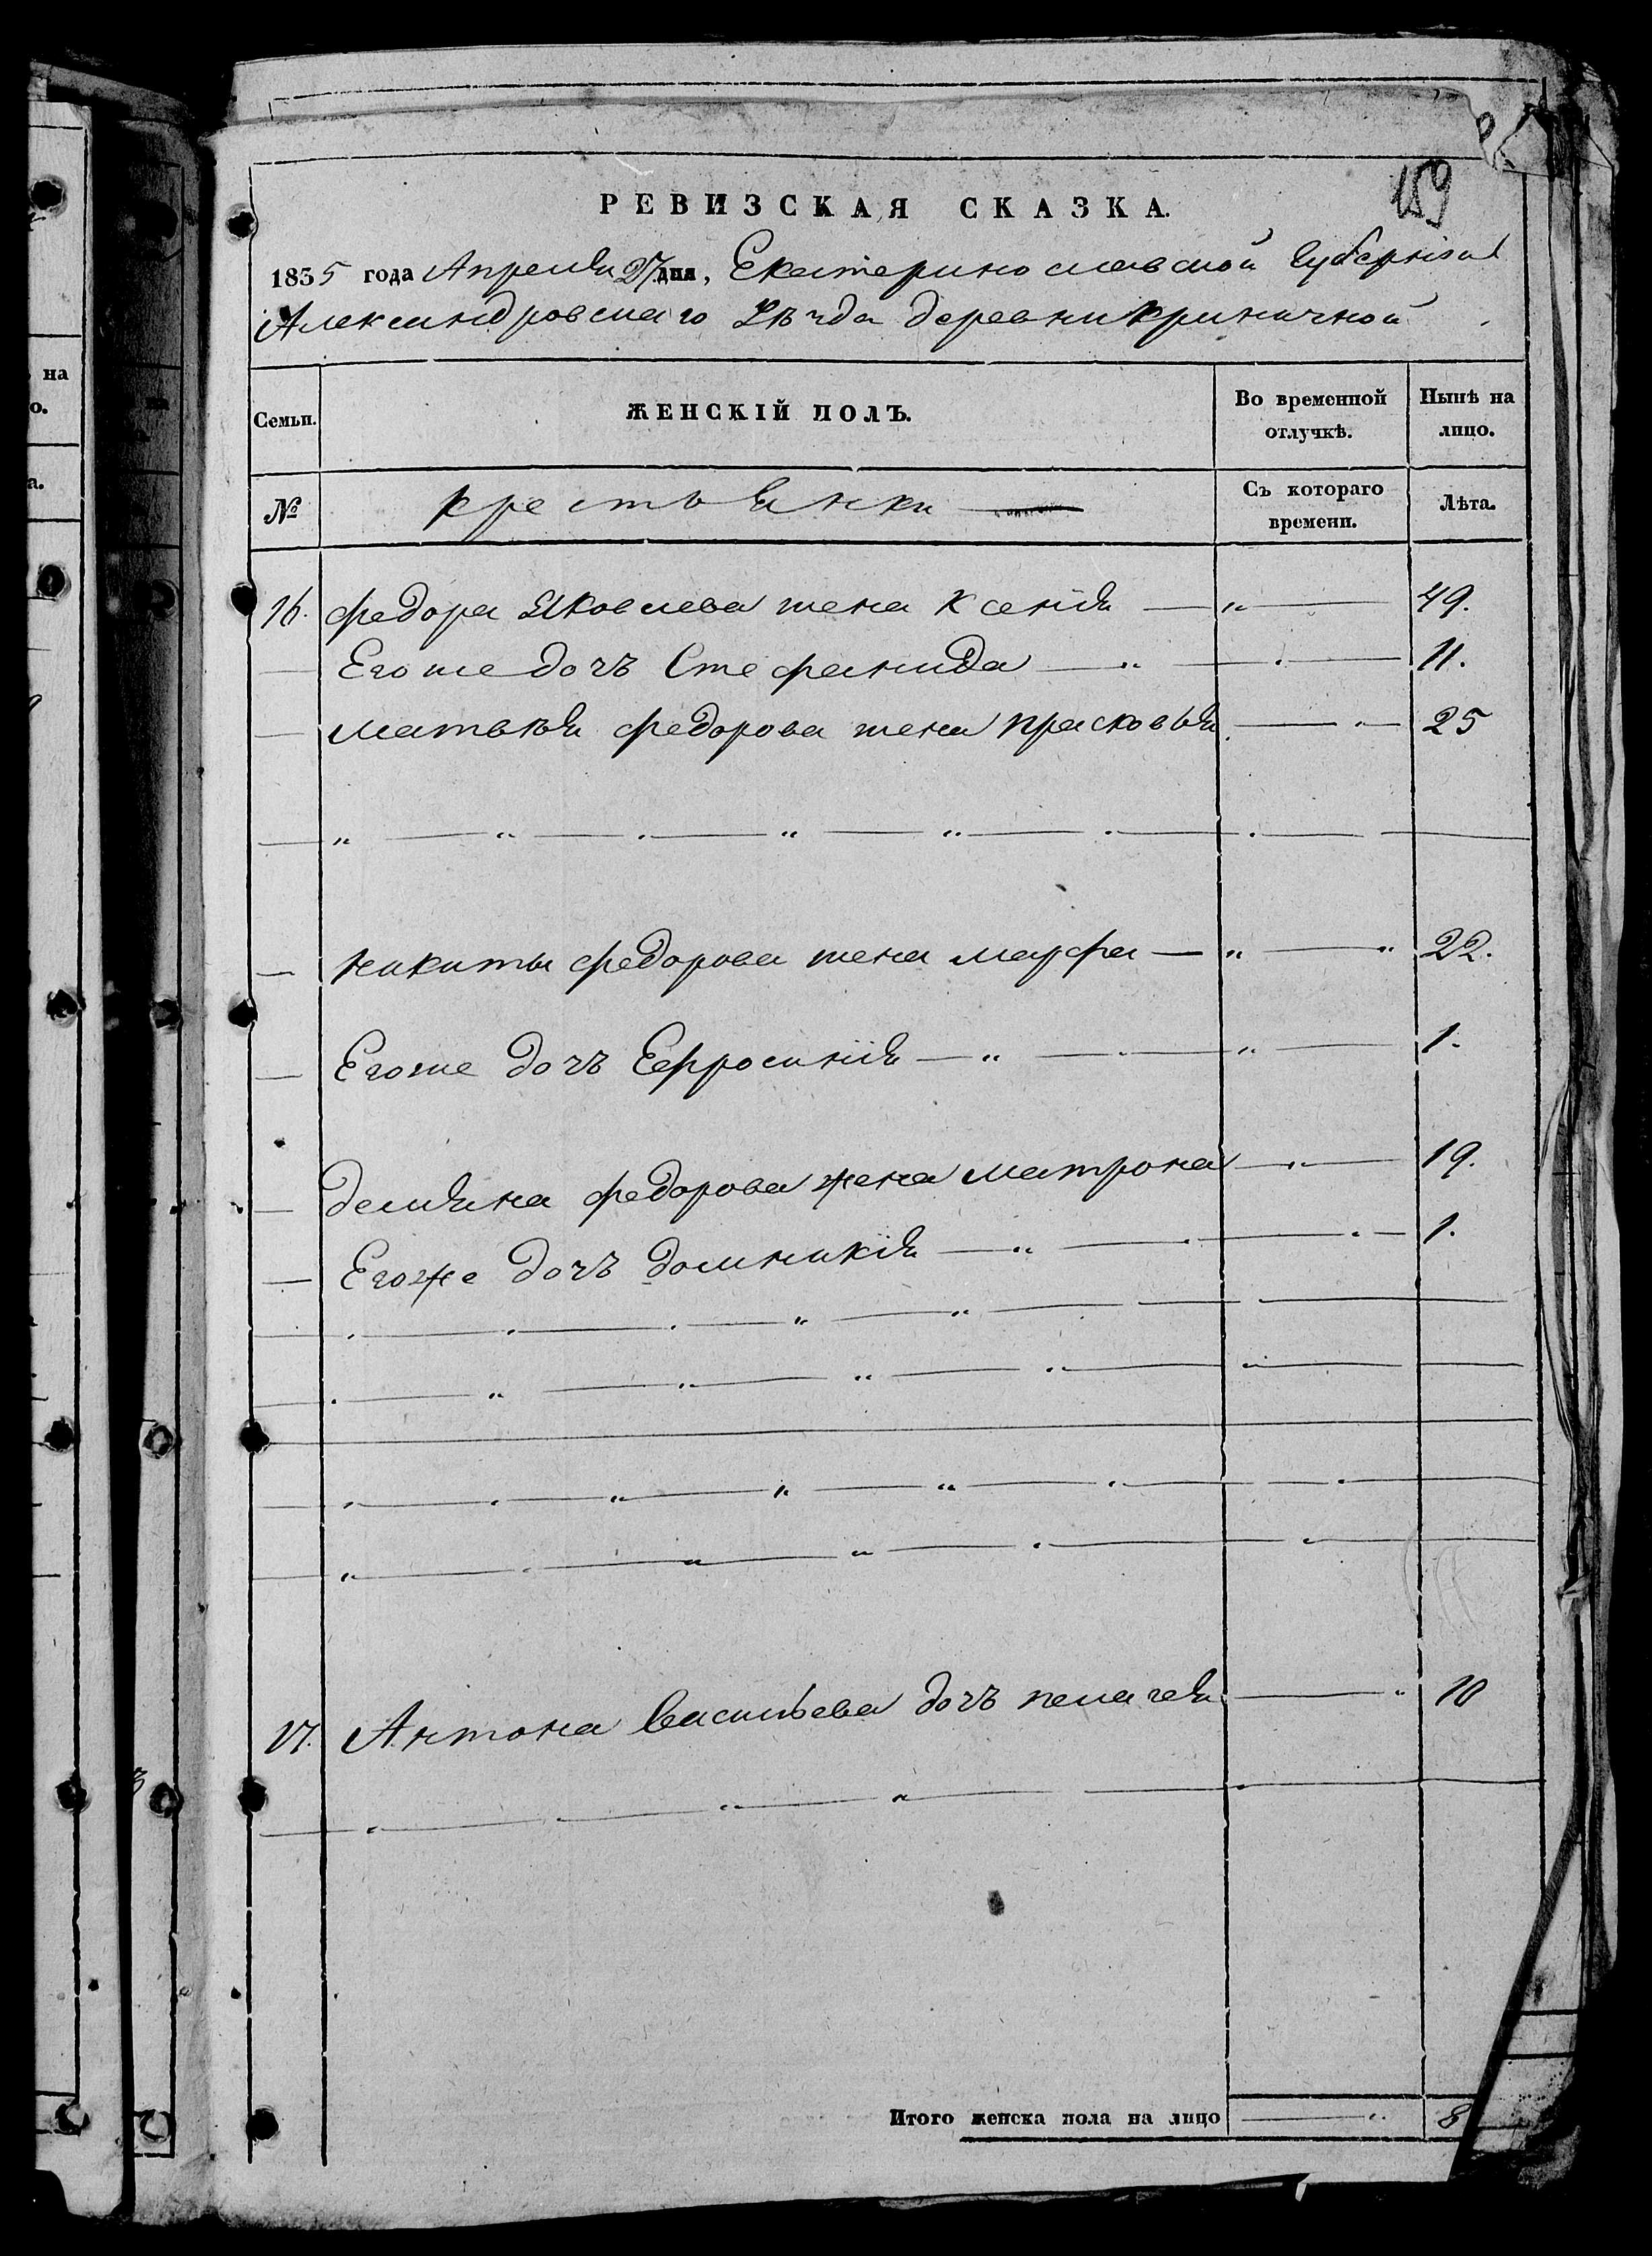 159
РЕВИЗСКАЯ СКАЗКА.
1835 года Апреля 27 дня, Екатеринославской Губерніи
Александровскаго Уѣзда деревни Криничной
Семьи. ЖЕНСКІЙ ПОЛЪ. Во временной отлучкѣ. Нынѣ на лицо.
№ крестьянки Съ котораго времени. Лѣта.
16. федора Яковлева жена Ксенія — " — 49.
— Егоже дочъ Стефанида — " — 11.
— матвѣя федорова жена Прасковья — " — 25
— никиты федорова жена марфа — " — " 22.
— Егоже дочъ Ефросинія — " — " — 1.
— демяна федорова жена матрона — " — 19.
— Егоже дочъ домникія — " — 1.
17. Антона Васильева дочъ пелагея — " 10
Итого женска пола на лицо — " 8
на
о.
а.